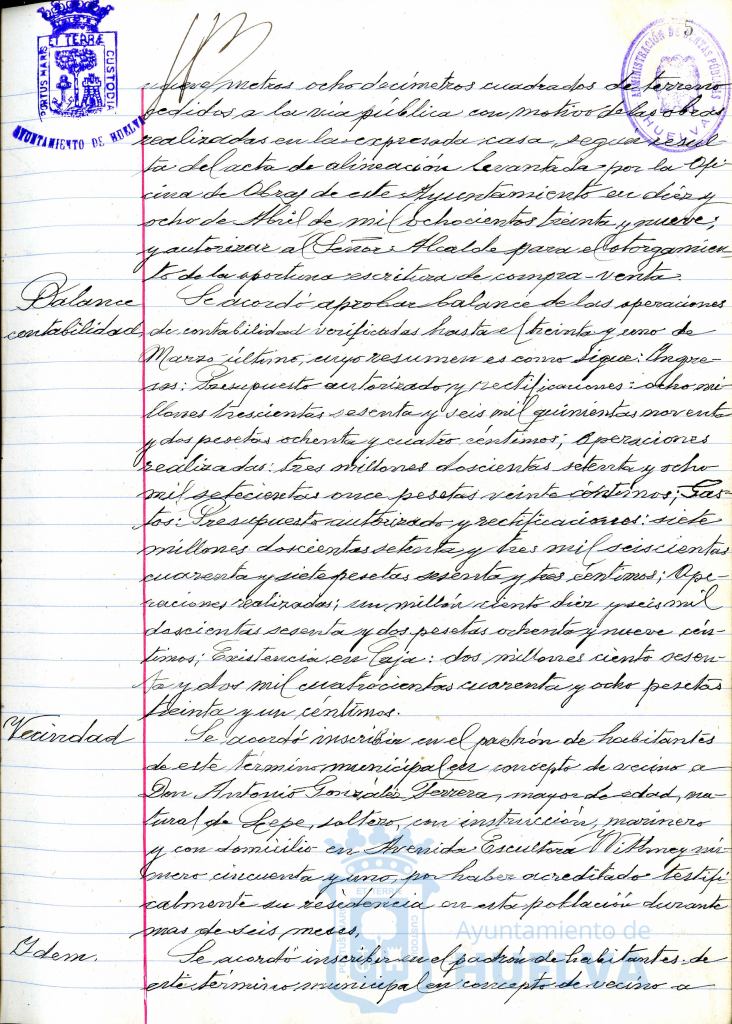 5
PORTUS MARIS ET TERRÆ CUSTODIA
AYUNTAMIENTO DE HUELVA
ADMINISTRACIÓN DE RENTAS PÚBLICAS
HUELVA
nueve metros ocho decímetros cuadrados de terreno
cedidos a la vía pública con motivo de las obras
realizadas en la expresada casa, según resul-
ta del acta de alineación levantada por la Ofi-
cina de Obras de este Ayuntamiento en diez y
ocho de Abril de mil ochocientos treinta y nueve;
y autorizar al Señor Alcalde para el otorgamien-
to de la oportuna escritura de compra-venta.
Balance
contabilidad,
Se acordó aprobar balance de las operaciones
de contabilidad verificadas hasta el treinta y uno de
Marzo último, cuyo resumen es como sigue: Ingre-
sos: Presupuesto autorizado y rectificaciones: ocho mi-
llones trescientas sesenta y seis mil quinientas noventa
y dos pesetas ochenta y cuatro céntimos; Operaciones
realizadas: tres millones doscientas setenta y ocho
mil setecientas once pesetas veinte céntimos; Gas-
tos: Presupuesto autorizado y rectificaciones: siete
millones doscientas setenta y tres mil seiscientas
cuarenta y siete pesetas sesenta y tres céntimos; Ope-
raciones realizadas; un millón ciento diez y seis mil
doscientas sesenta y dos pesetas ochenta y nueve cén-
timos; Existencia en Caja: dos millones ciento sesen-
ta y dos mil cuatrocientas cuarenta y ocho pesetas
treinta y un céntimos.
Vecindad
Se acordó inscribir en el padrón de habitantes
de este término municipal en concepto de vecino a
Don Antonio González Ferrera, mayor de edad, na-
tural de Lepe, soltero, con instrucción, marinero
y con domicilio en Avenida Escultora Withney nú-
mero cincuenta y uno, por haber acreditado testifi-
calmente su residencia en esta población durante
mas de seis meses.
Idem.
Se acordó inscribir en el padrón de habitantes de
este término municipal en concepto de vecino a
Ayuntamiento de
HUELVA